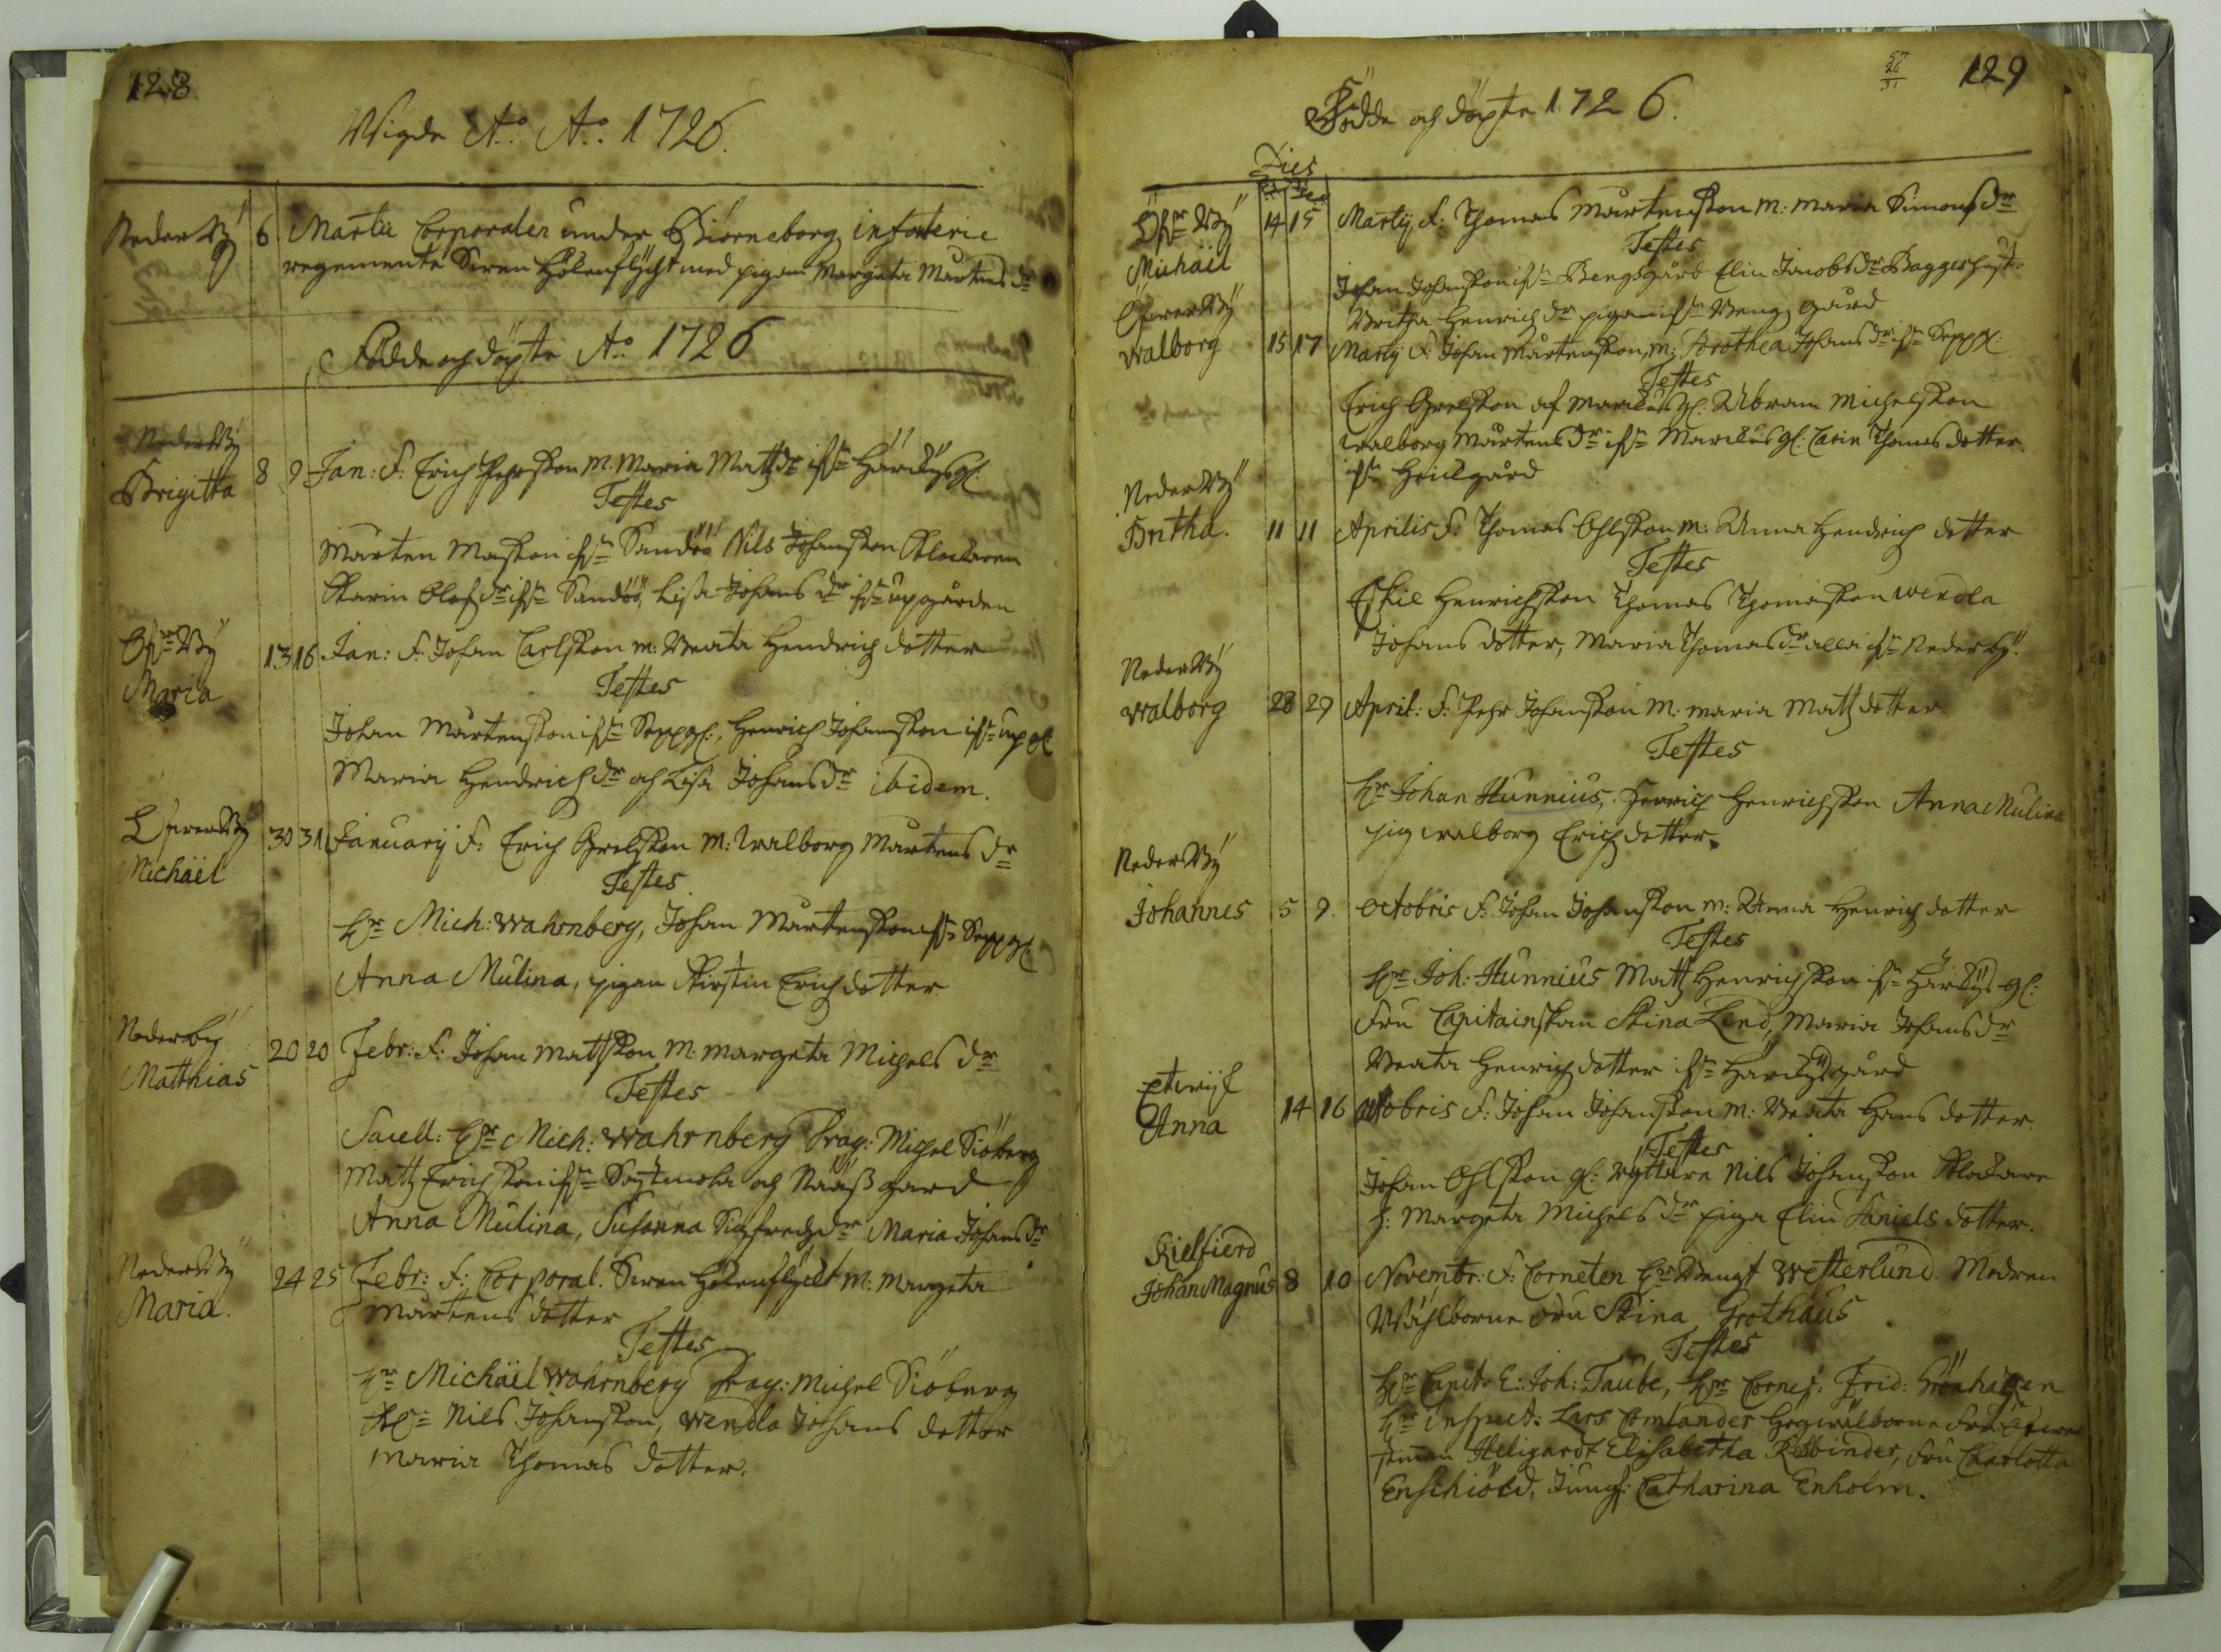 128
Wigde A:o A:o 1726.
Neder By 6 Martii Corporalen under Biörneborg infanterie
regemente Swen Hölenflycht med pigan Margeta Mårtens dr
Födde och döpte A:o 1726
Neder By
Brigitta 8 9 Jan: F: Erich Pehrsson M. Maria Matz dr
Testes
Mårten Masson ifr Sandöö Nils Johansson Klockaren
Karin Olofs dr ifr Sandöö, Lisa Johans dr ifr upgården
Ofr By
Maria 13 16 Jan: F: Johan Carlsson m: Beata Hendrich dotter
Testes
Johan Mårtensson ifr Sepp gl:, Henrich Johansson ifr up gl
Maria Hendrich dr och Lisa Johans dr ibidem.
Öfwer By
Michäel 30 31 Januarij F: Erich Grelsson M: Walborg Martens dr
Testes
Hr Mich: Wahrnberg, Johan Mårtensson ifr Sepp gl.
Anna Mulina, pigan Kirstin Erich dotter
Nederby
Matthias 20 20 Febr: F: Johan Mattsson M: Margeta Michels dr
Testes
Sacell: Hr Mich: Wahrnberg Drag: Michel Siöberg
Matz Erichsson ifr och Nääs gård
Anna Mulina, Susanna Sigfredz dr Maria Johans dr
Neder By
Maria. 24 25 Febr: F: Corporal. Swen Hölenflycht M: Margeta
Mårtens dotter
Testes
Hr Michäel Wahrnberg Drag: Michel Siöberg
Nils Johansson, Wendla Johans dotter
Maria Thomas dotter.
129
Födde och döpte 1726.
Dies
Öfr By
Michäil 14 15 Martij F: Thomas Mårtensson M: Maria Simons dr
Testes
Johan Johansson ifr Bengsgård Elin Jacobs dr
Britha Henrich dr pigan ifr Beng gård
Öfwer By
Walborg 15 17 Martij F: Johan Mårtensson, M: Dorothea Johans dr ifr Sepp gl:
Testes
Erich Grelsson af Marcus gl: Abram Michelsson
Walborg Mårtens dr ifr Marcus gl: Carin Thomas dotter.
ifr gård
Neder By
Britha. 11 11 Aprilis F: Thomas Ohlsson m: Anna Hendrich dotter
Testes
Eskil Henrichsson Thomas Thomasson Wendla
Johans dotter, Maria Thomas dr alla ifr Neder by.
Neder By
Walborg 28 29 April: F: Pehr Johansson M: Maria Matz dotter
Testes
Hr Johan Hunnius, Henrich Henrichsson Anna Mulina
pig Walborg Erich dotter.
Neder By
Johannes 5 9. Octobris F: Johan Johansson m: Anna Henrich dotter
Testes
Hr Joh: Hunnius Matz Henrichsson ifr gl:
Fru Capitainskan Stina Lind, Maria Johans dr
Beata Henrich dotter ifr gård
Anna 14 16 Octobris F: Johan Johansson M: Beata Hans dotter.
Testes
Johan Ohlsson gl: Ryttare Nils Johansson Klockare
h: Margeta Michels dr piga Elin Daniels dotter.
Kielfierd
Johan Magnus 8 10 Novembr: F: Corneten Hr Bengt Westerlund. Modren
Wählborne Fru Stina Grothaus
Testes
Hr Capit: E: Joh: Taube, Hr Cornet: Frid: Grönhagen
Hr inspect: Lars Comlander Högwälborne Fru
Heligardt Elisabetha Rebbinder, Fru Charlotta
Enschiöld, Jungf: Catharina Enholm.